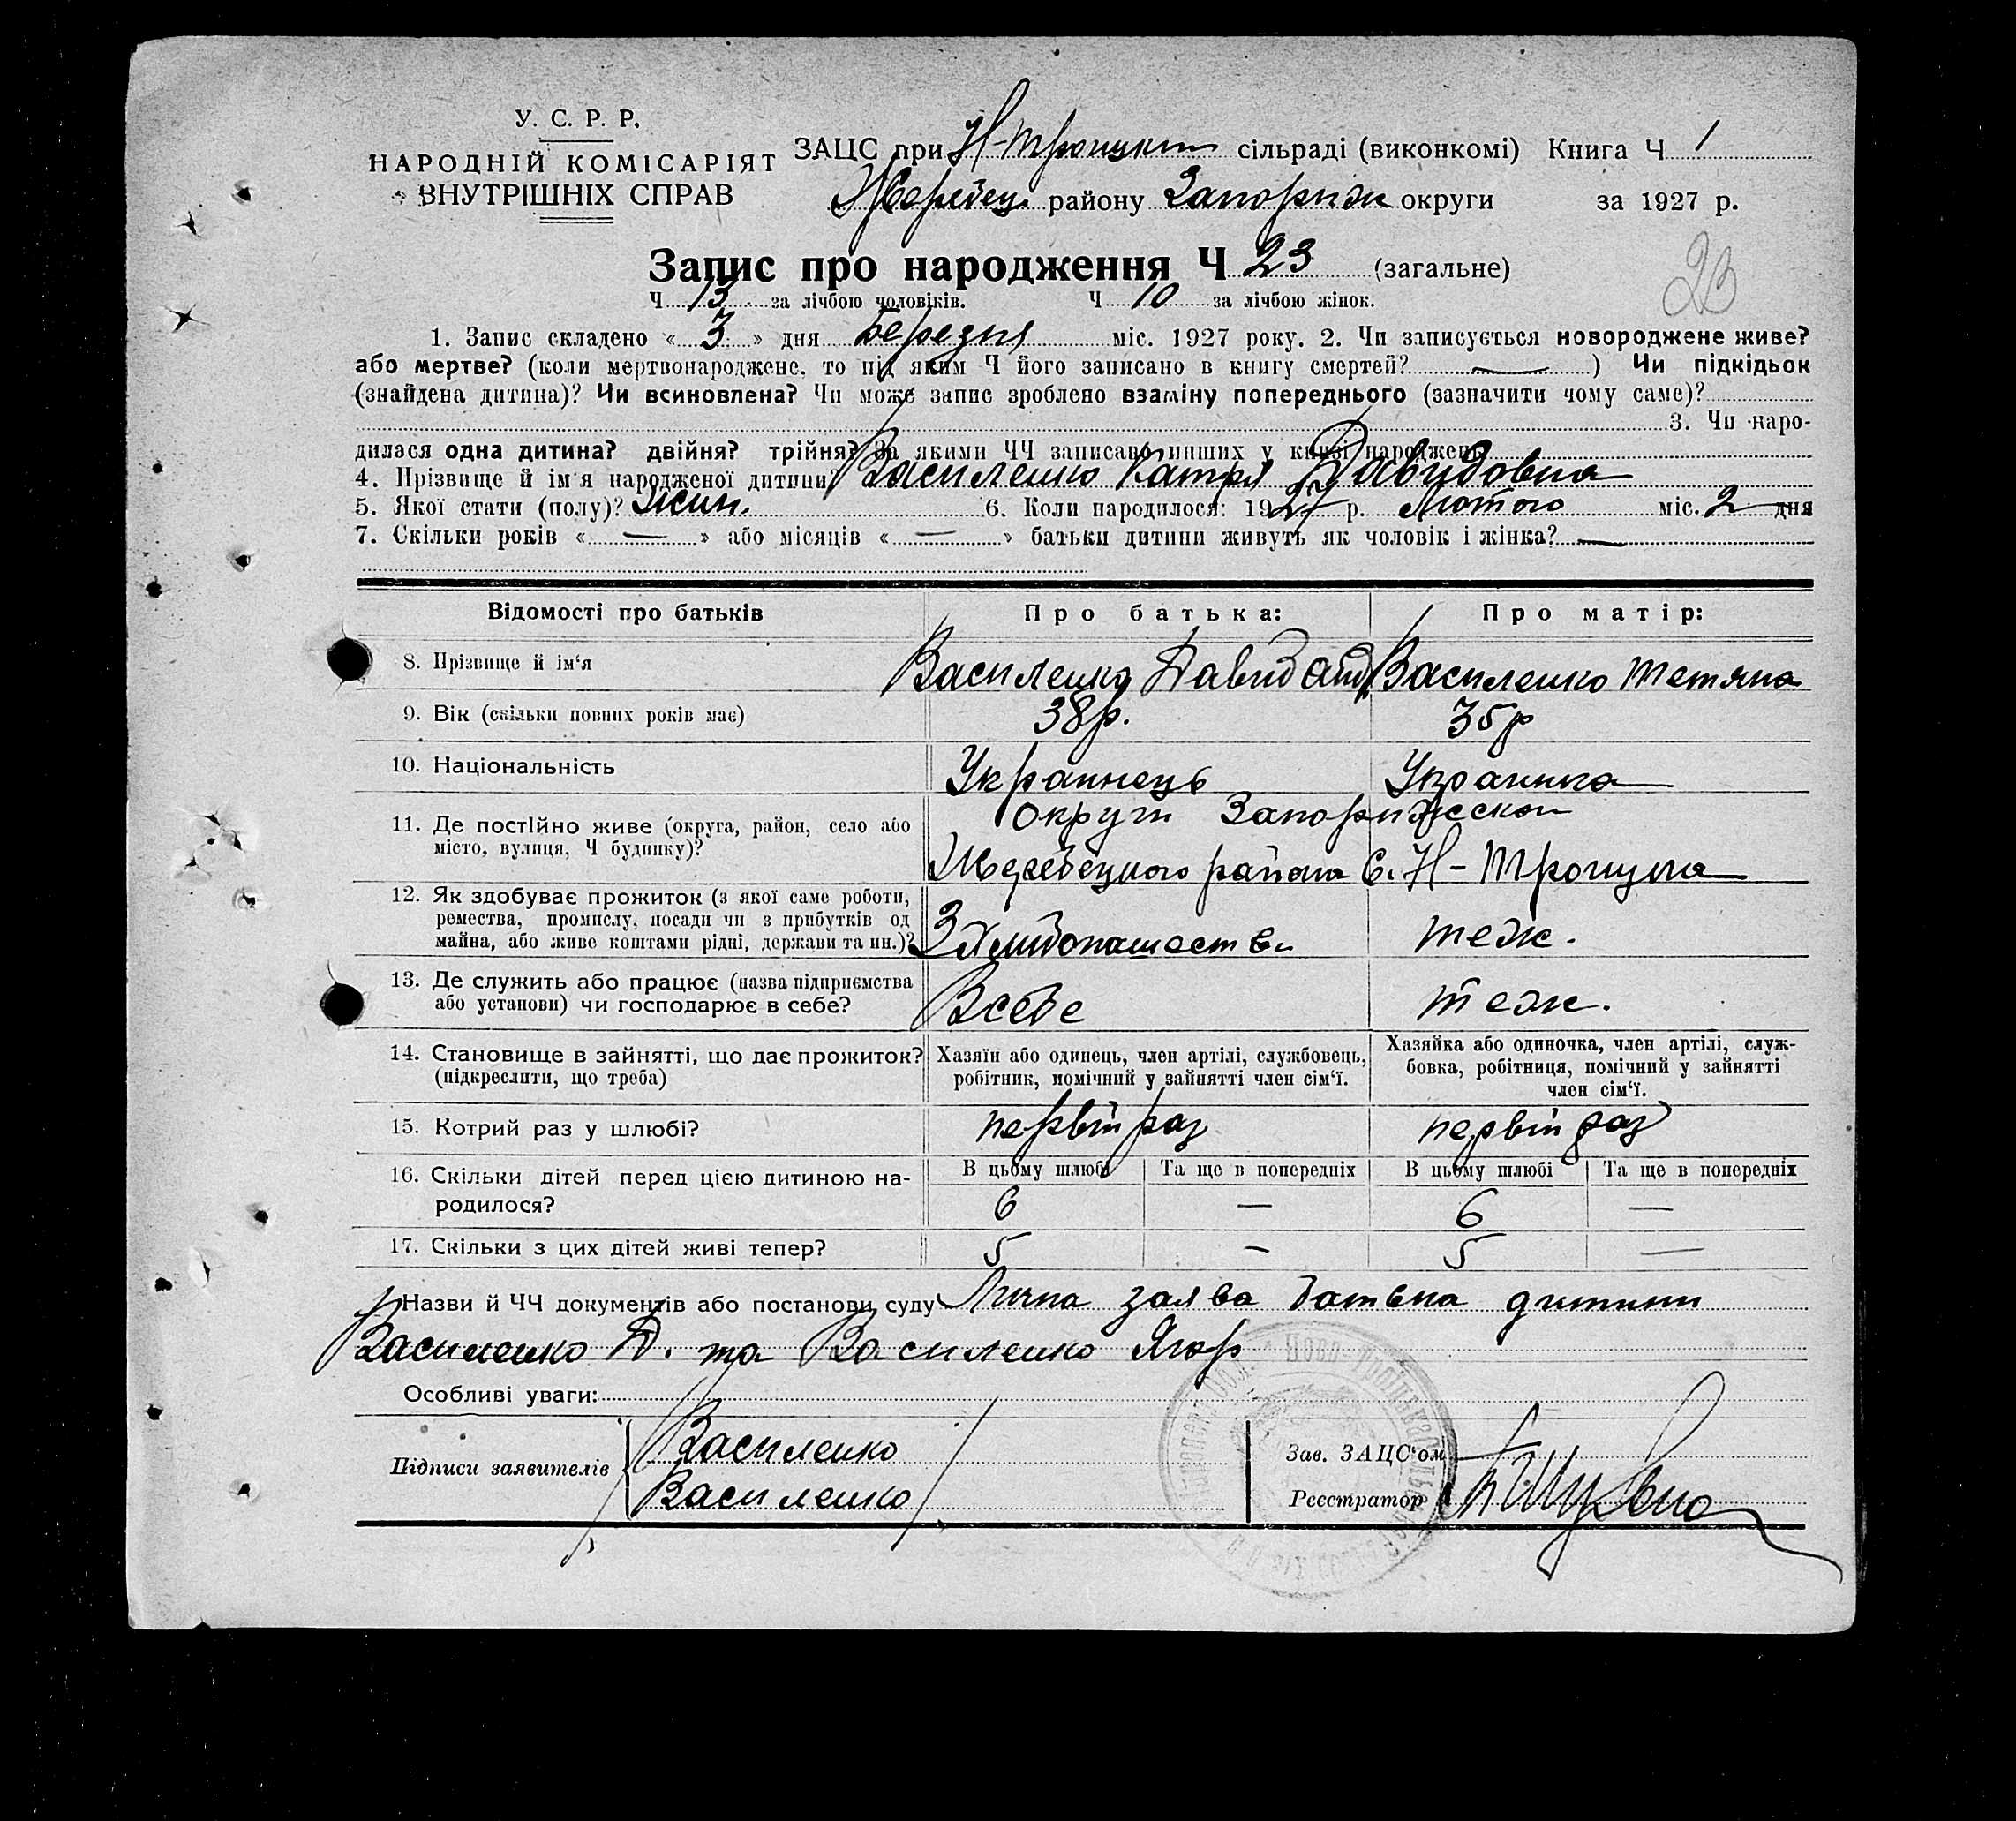 У. С. Р. Р.
НАРОДНІЙ КОМІСАРІЯТ
ВНУТРІШНІХ СПРАВ
ЗАЦС при Н-Троицкій сільраді (виконкомі) Книга Ч 1
Жеребец. району Запориж округи за 1927 р.
Запис про народження Ч 23 (загальне)
23
Ч 13 за лічбою чоловіків. Ч 10 за лічбою жінок.
1. Запис складено « 3 » дня Березня міс. 1927 року. 2. Чи записується новороджене живе?
або мертве? (коли мертвонароджене, то під яким Ч його записано в книгу смертей? — ) Чи підкідьок
(знайдена дитина)? Чи всиновлена? Чи може запис зроблено взаміну попереднього (зазначити чому саме)?
3. Чи наро-
дилася одна дитина? двійня? трійня? За якими ЧЧ записано инших у книзі народжень
4. Прізвище й ім'я народженої дитини? Василенко Катря Давидовна
5. Якої стати (полу)? жин. 6. Коли народилося: 1927 р. Лютого міс. 2 дня
7. Скільки років « — » або місяців « — » батьки дитини живуть як чоловік і жінка? —
Відомості про батьків Про батька: Про матір:
8. Прізвище й ім'я Василенко Давид Анд Василенко Тетяна
9. Вік (скільки повних років має) 38р. 35р
10. Національність Украинець Украинка
11. Де постійно живе (округа, район, село або
місто, вулиця, Ч будинку)?
округи Запорижской
Жеребецкого района С. Н-Троицка
12. Як здобуває прожиток (з якої саме роботи,
ремества, промислу, посади чи з прибутків од
майна, або живе коштами рідні, держави та ин.)?
З Хлибопашества теж.
13. Де служить або працює (назва підприємства
або установи) чи господарює в себе?
Всебе теж.
14. Становище в зайнятті, що дає прожиток?
(підкреслити, що треба)
Хазяїн або одинець, член артілі, службовець,
робітник, помічний у зайнятті член сім'ї.
Хазяйка або одиночка, член артілі, служ-
бовка, робітниця, помічний у зайнятті
член сім'ї.
15. Котрий раз у шлюбі? первій раз первій раз
16. Скільки дітей перед цією дитиною на-
родилося?
В цьому шлюбі Та ще в попередніх В цьому шлюбі Та ще в попередніх
6 — 6 —
17. Скільки з цих дітей живі тепер? 5 - 5 —
Назви й ЧЧ документів або постанови суду Лична заява батька дитини
Василенко Д. та Василенко Ягор
Особливі уваги:
Підписи заявителів
Василенко
Василенко
Зав. ЗАЦС'ом
Реєстратор